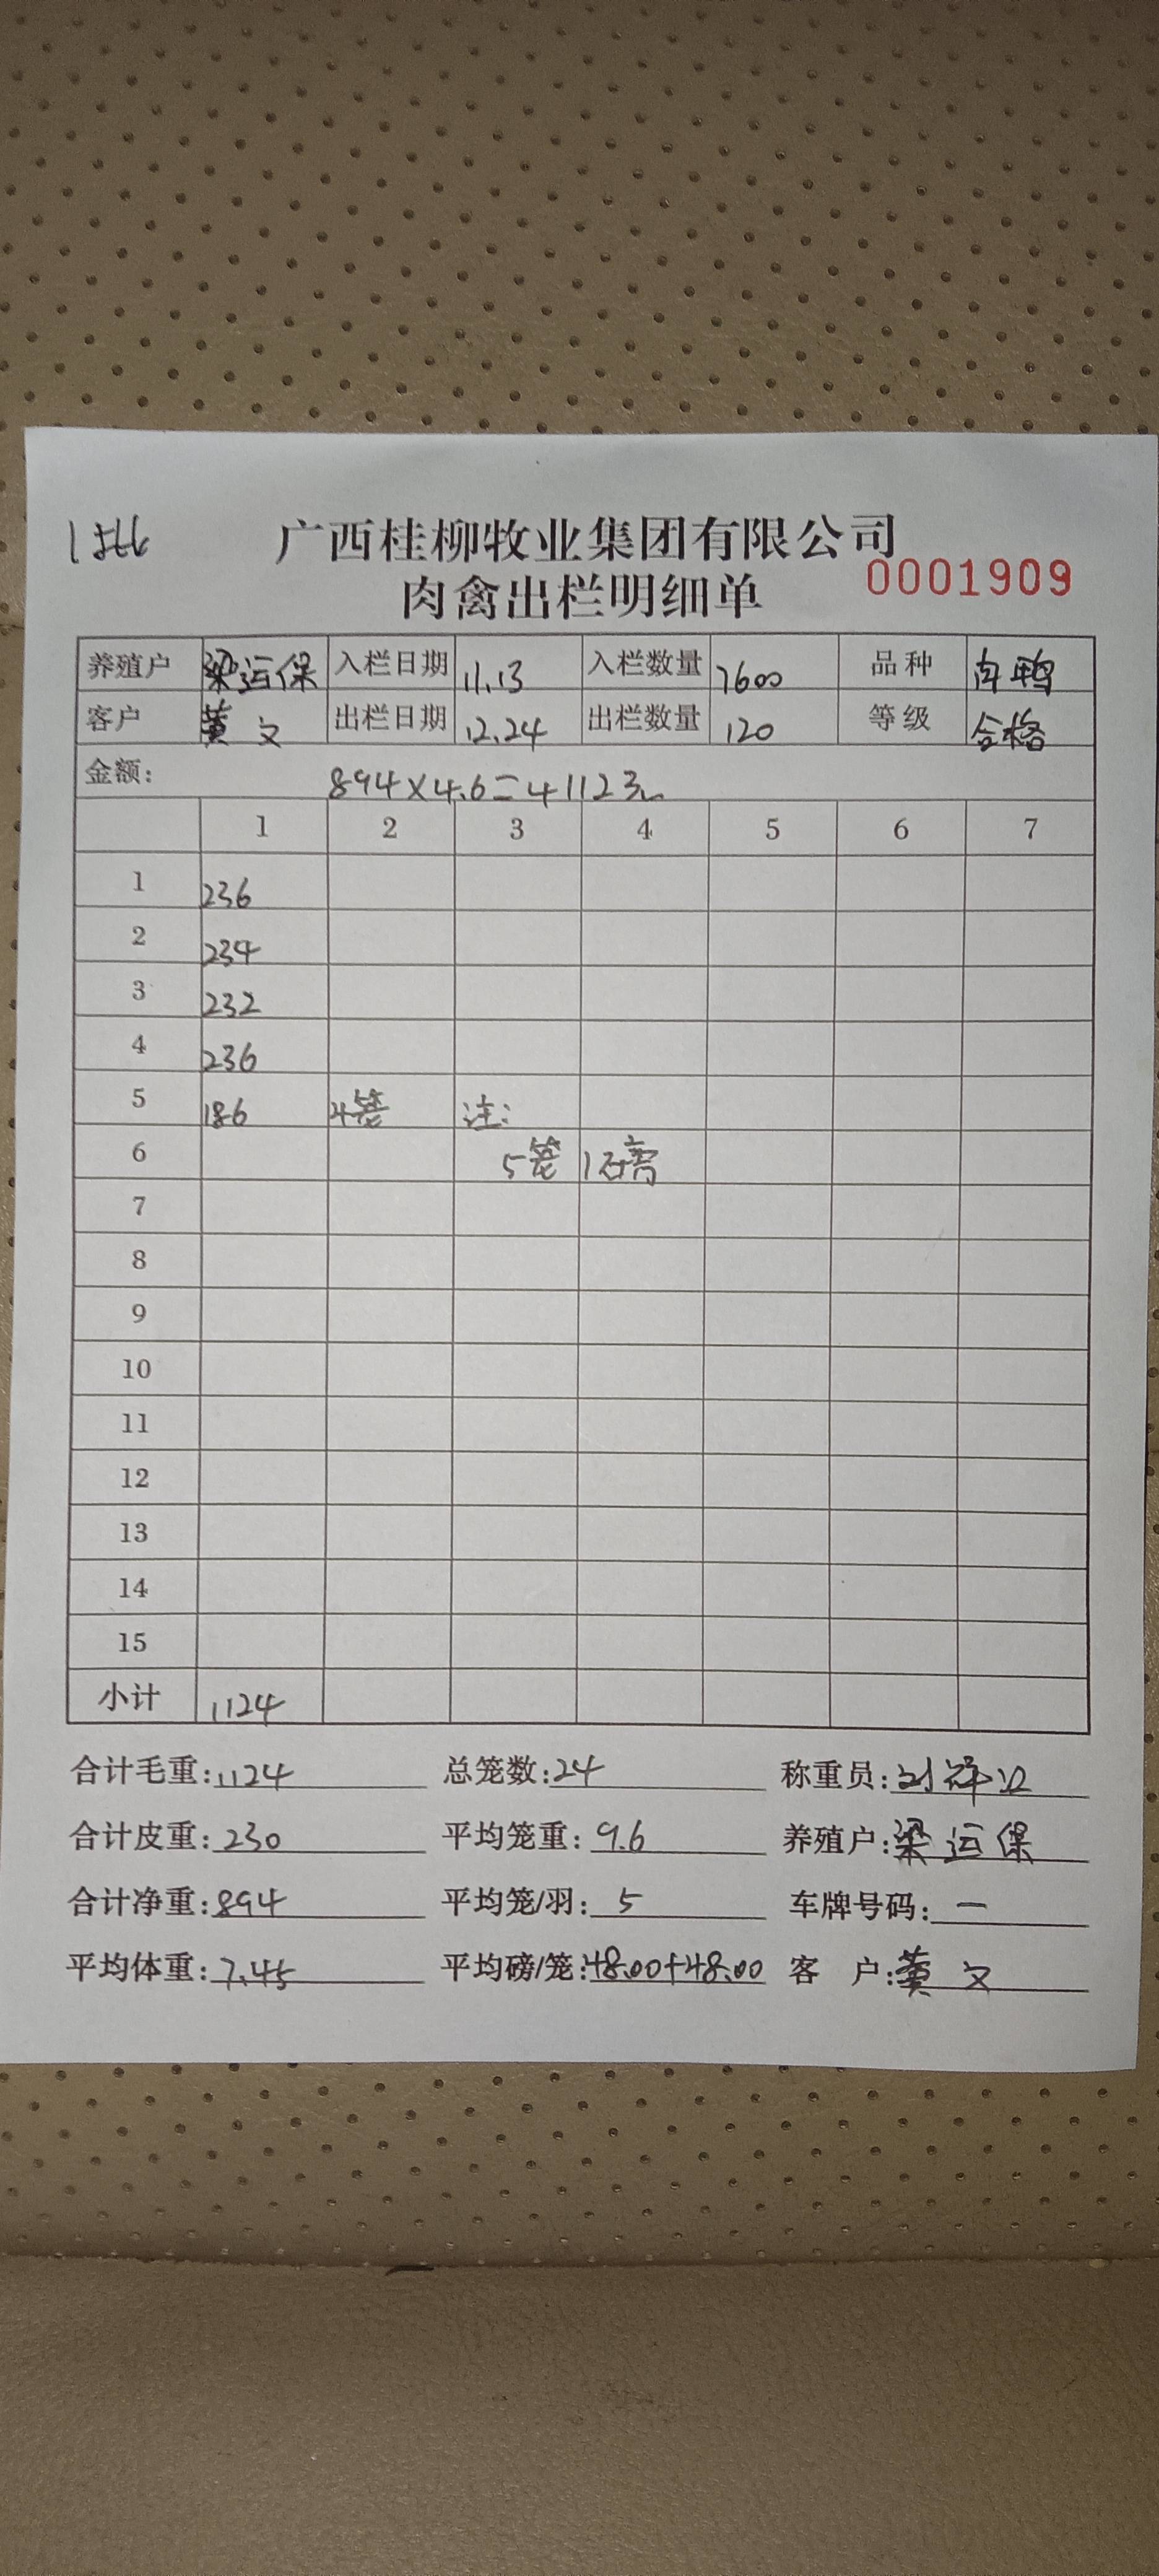 1批
广西桂柳牧业集团有限公司
肉禽出栏明细单
0001909
养殖户 梁运保 入栏日期 11.13 入栏数量 7600 品种 肉鸭
客户 黄文 出栏日期 12.24 出栏数量 120 等级 合格
金额: 894×4.6=4112元
1 2 3 4 5 6 7
1 236
2 234
3 232
4 236
5 186 4笼 注:
6 5笼 1磅
7
8
9
10
11
12
13
14
15
小计 1124
合计毛重: 1124 总笼数: 24 称重员: 刘
合计皮重: 230 平均笼重: 9.6 养殖户: 梁运保
合计净重: 894 平均笼/羽: 5 车牌号码: 一
平均体重: 7.45 平均磅/笼: 48.00+48.00 客 户: 黄文